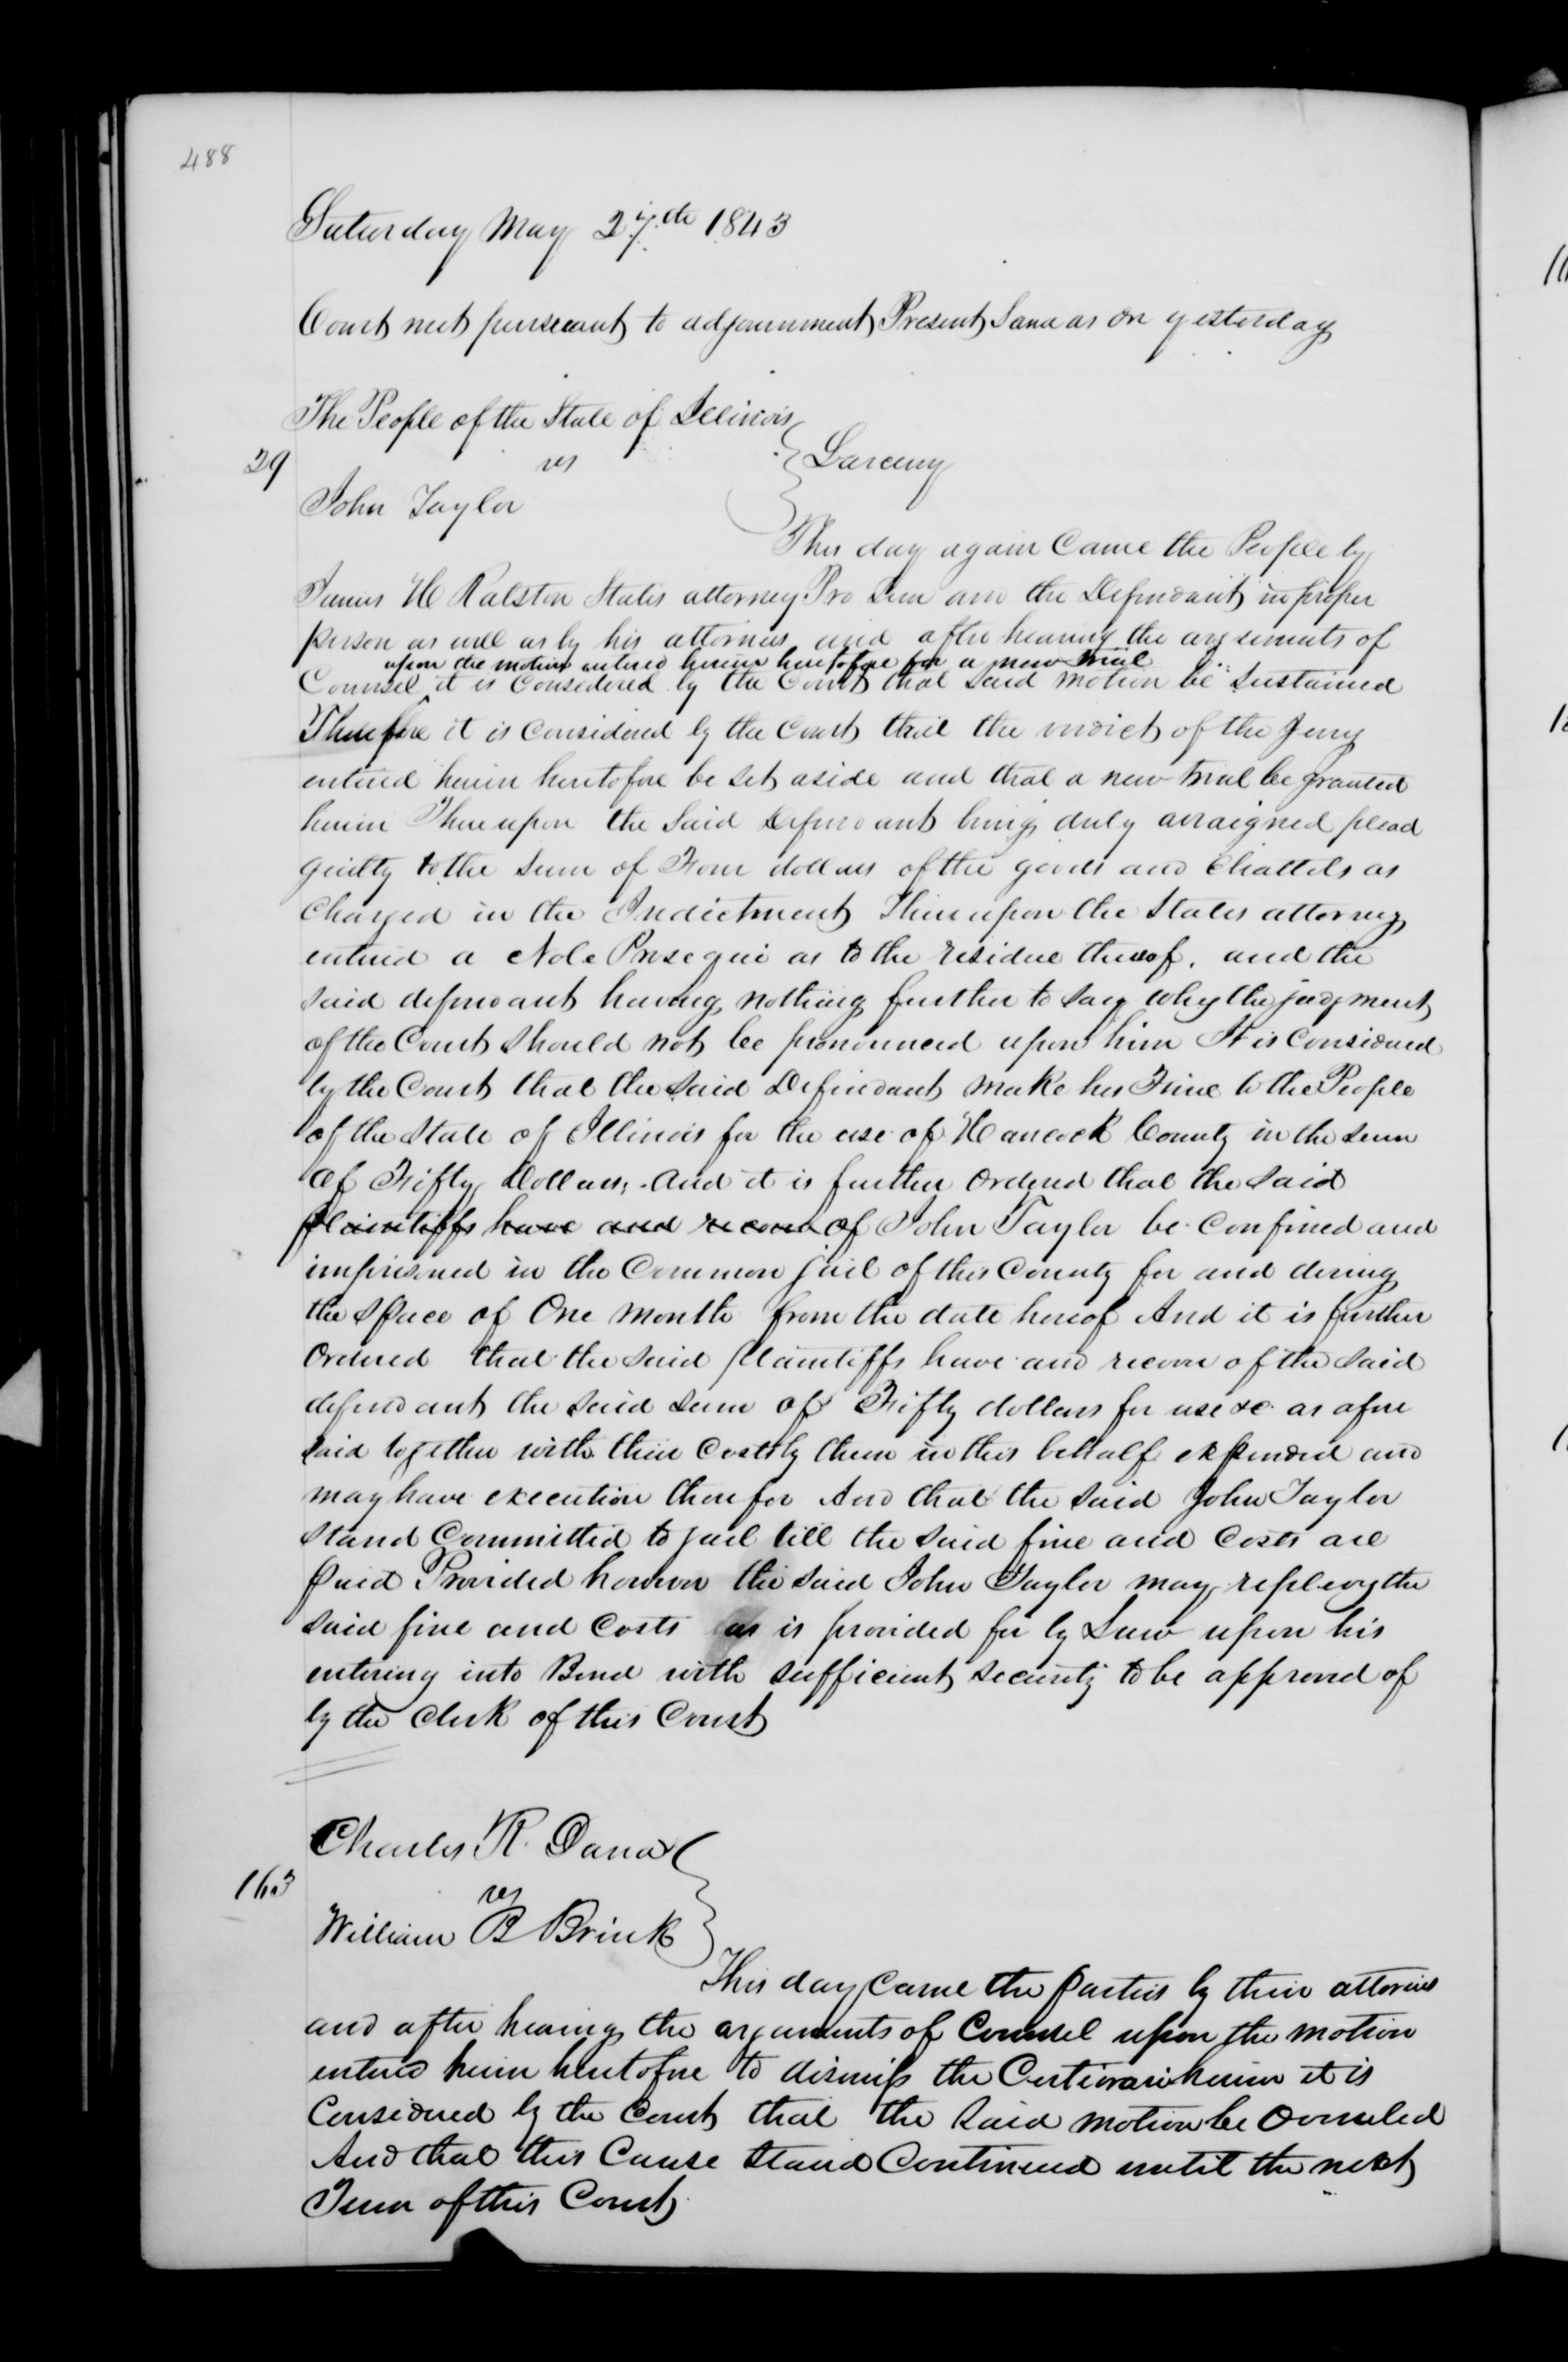 488
Saturday May 27th 1843
Court met pursuant to adjournment Present Same as on yesterday
The People of the State of Illinois
29 vs Larceny
John Taylor
This day again Came the People by
James H Ralston States attorney Pro tem and the Defendant in proper
person as well as by his attornies and after hearing the arguments of
upon the motion entered herein heretofore for a new trial
Counsel it is Considered by the Court that said motion be sustained
Therefore it is Considered by the Court that the verdict of the Jury
entered herein heretofore be set aside and that a new trial be granted
herein Thereupon the Said Defendant being duly arraigned plead
guilty to the sum of Four dollars of the goods and Chattels as
Charged in the Indictment Thereupon the States attorney
entered a Nole Prosequi as to the residue thereof. and the
said defendant having nothing further to say why the judgment
of the Court should not be pronounced upon him It is Considered
by the Court that the said Defendant make his Fine to the People
of the State of Illinois for the use of Hancock County in the sum
of Fifty Dollars, And it is further Ordered that the Said
plaintiffs have and recover of John Taylor be Confined and
imprisoned in the Common jail of this County for and during
the Space of One month from the date hereof And it is further
Ordered that the said plaintiffs have and recover of the said
defendant the said sum of Fifty dollars for use &c as afore
said together with their Costs by them in this behalf expended and
may have execution therefor And that the said John Taylor
Stand Committed to jail till the said fine and Costs are
paid Provided however the said John Taylor may replevy the
said fine and Costs as is provided for by Law upon his
entering into Bond with sufficient security to be approved of
by the Clerk of this Court
Charles R. Dana
163 vs
William B Brink
This day Came the parties by their attornies
and after hearing the arguments of Counsel upon the motion
entered herein heretofore to dismiss the Certiorari herein it is
Considered by the Court that the said motion be Overruled
And that this Cause Stand Continued until the next
Term of this Court